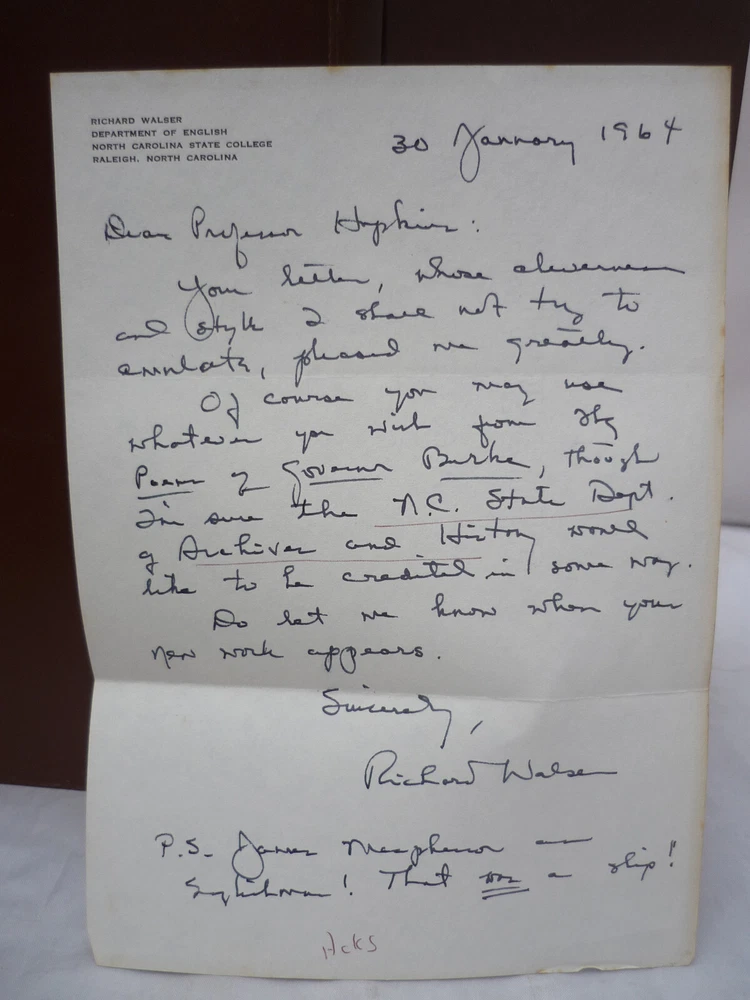 RICHARD WALSER
DEPARTMENT OF ENGLISH
NORTH CAROLINA STATE COLLEGE
RALEIGH, NORTH CAROLINA
30 January 1964
Dear Professor Hopkins:
Your letter, whose cleverness
and style I shall not try to
emulate, pleased me greatly.
Of course you may use
whatever you wish from The
Poems of Governor Burke, though
I'm sure the N.C. State Dept.
of Archives and History would
like to be credited in some way.
Do let me know when your
new work appears.
Sincerely,
Richard Walser
P.S. James Macpherson an
Englishman! That was a slip!